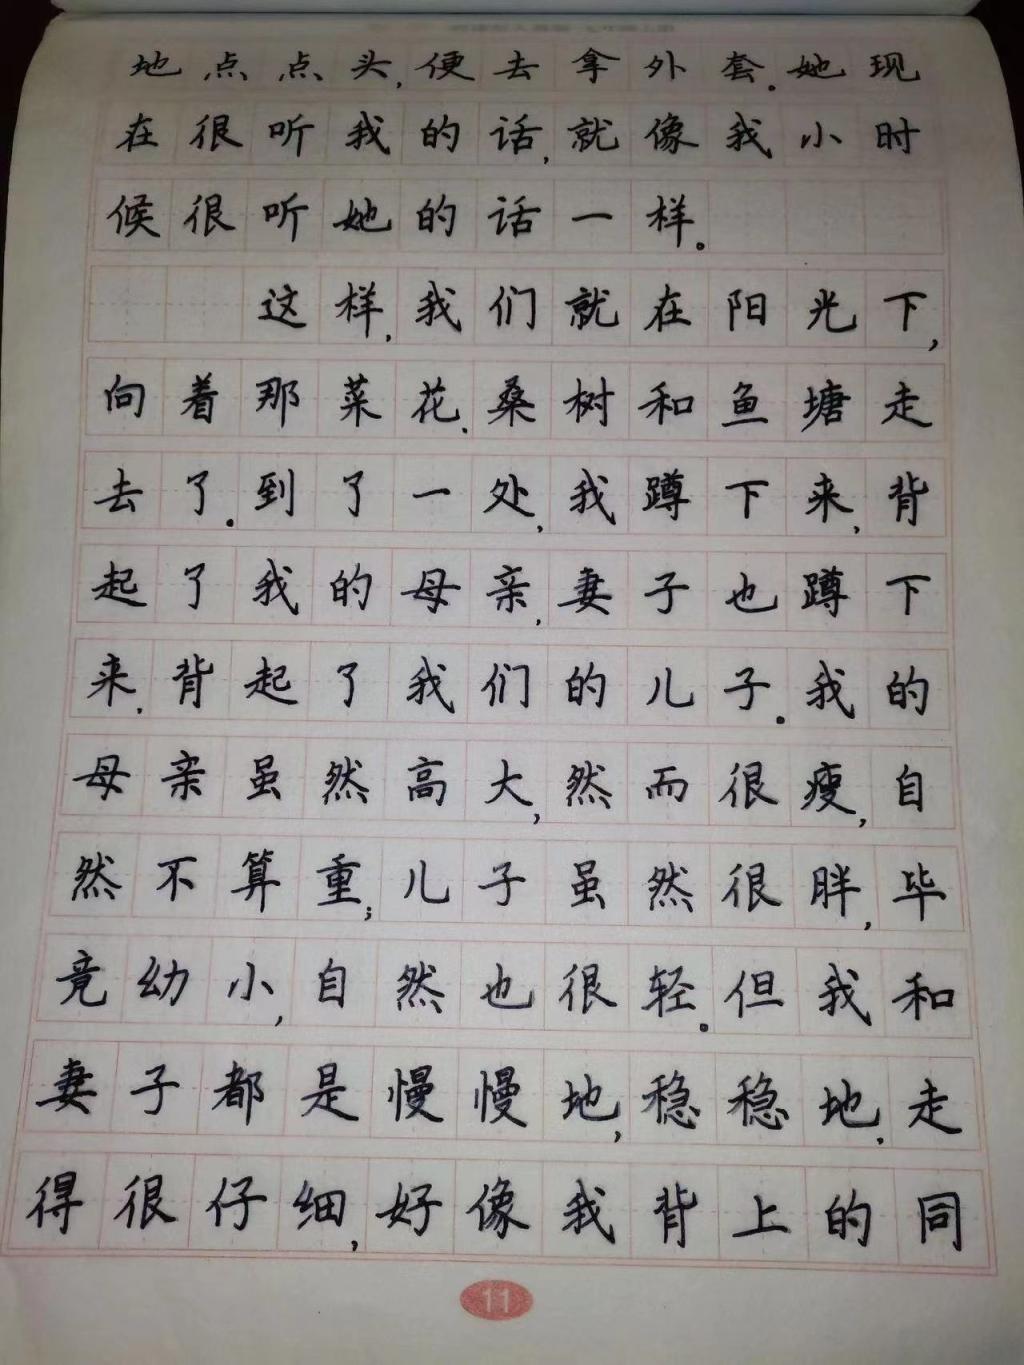 地点点头,便去拿外套.她现
在很听我的话,就像我小时
候很听她的话一样。
这样,我们就在阳光下,
向着那菜花.桑树和鱼塘走
去了.到了一处,我蹲下来,背
起了我的母亲,妻子也蹲下
来,背起了我们的儿子.我的
母亲虽然高大,然而很瘦,自
然不算重;儿子虽然很胖,毕
竟幼小,自然也很轻。但我和
妻子都是慢慢地,稳稳地,走
得很仔细,好像我背上的同
11